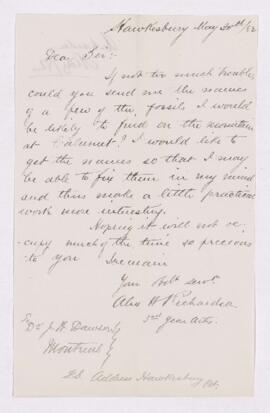 Hawkesbury May 20th/82
Dear Sir:-
If not too much trouble
could you send me the names
of a few of the fossils I would
be likely to find on the mountain
at Calumet? I would like to
get the names so that I may
be able to fix them in my mind
and thus make a little practical
work more interesting.
Hoping it will not oc-
cupy much of the time so precious
to you I remain
Your Obdt Servt
Alex H Richardson
3rd Year Arts.
Dr J. W. Dawson
Montreal
P.S. Address Hawkesbury
Ont.